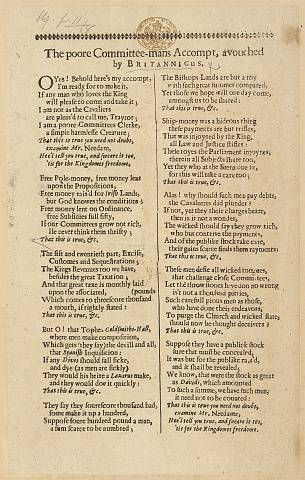 The poore Committee-mans Accompt, avouched
by BRITANNICUS.
O Yes! Behold here's my accompt,
I'm ready for to make it,
If any man who loves the King
will please to come and take it;
I am not as the Cavaliers
are pleas'd to call me, Traytor;
I am a poore Committees Clerke,
a simple harmlesse Creature;
That this is true you need not doubt,
examine Mr. Needam,
Hee'l tell you true, and sweare it too,
'tis for the Kingdomes freedome.
Free Pole-money, free money lent
upon the Propositions,
Free money rais'd for Irish Lands,
but God knowes the conditions;
Free money lent on Ordinance,
free Subsidies full fifty,
If our Committees grow not rich,
Ile never think them thrifty;
That this is true, &c.
The fift and twentieth part, Excise,
Customes and Sequestrations;
The Kings Revenues too we have,
besides the great Taxation;
And that great taxe is monthly laid
upon the associated, (pounds
Which comes to threescore thousand
a month, if rightly stated;
That this is true, &c.
But O! that Tophet, Goldsmiths-Hall,
where men make composition,
Which gets 'they say) the devill and all,
that Spanish Inquisition:
If any Dives should fall sicke,
and dye (as men are sickly)
They would his heire a Lazarus make,
and they would doe it quickly:
That this is true, &c.
They say they foure score thousand had,
some make it up a hundred,
Suppose foure hundred pound a man,
a sum scarce to be numbred;
The Bishops Lands are but a toy
with such great summes compared,
Yet those we hope will one day come,
amongst us to be shared:
That this is true, &c.
Ship-money was a hideous thing
these payments are but trifles,
That was injoyned by the King,
all Law and Justice rifles:
These toyes the Parliament injoynes,
therein all Subjects share too,
Yet they who at the Stern doe sit,
for this will take a care too:
That this is true, &c.
Alas! why should such men pay debts,
the Cavaliers did plunder?
If not, yet they their charges beare,
then is it not a wonder,
The wicked should say they grow rich,
who but contrive the payments,
And of the publike stock take care,
their gains scarce finds them rayments:
That this is true, &c.
These men defie all wicked tongues,
that challenge close Committees,
Let those bones he's done no wrong
Such carefull pious men as those,
who have done their endeavours,
To purge the Church and wicked state,
should now be thought deceivers?
That this is true, &c.
Suppose they have a publick stock
sure that must be concealed,
It was but for the publike rais'd,
and it shall be revealed;
We know, that were the stock as great
as Davids, which amounted
To such a summe, we such men,
it need not to be counted:
That this is true you need not doubt,
examine Mr. Needame,
Hee'l tell you true, and sweare it too,
'tis for the Kingdomes freedome.